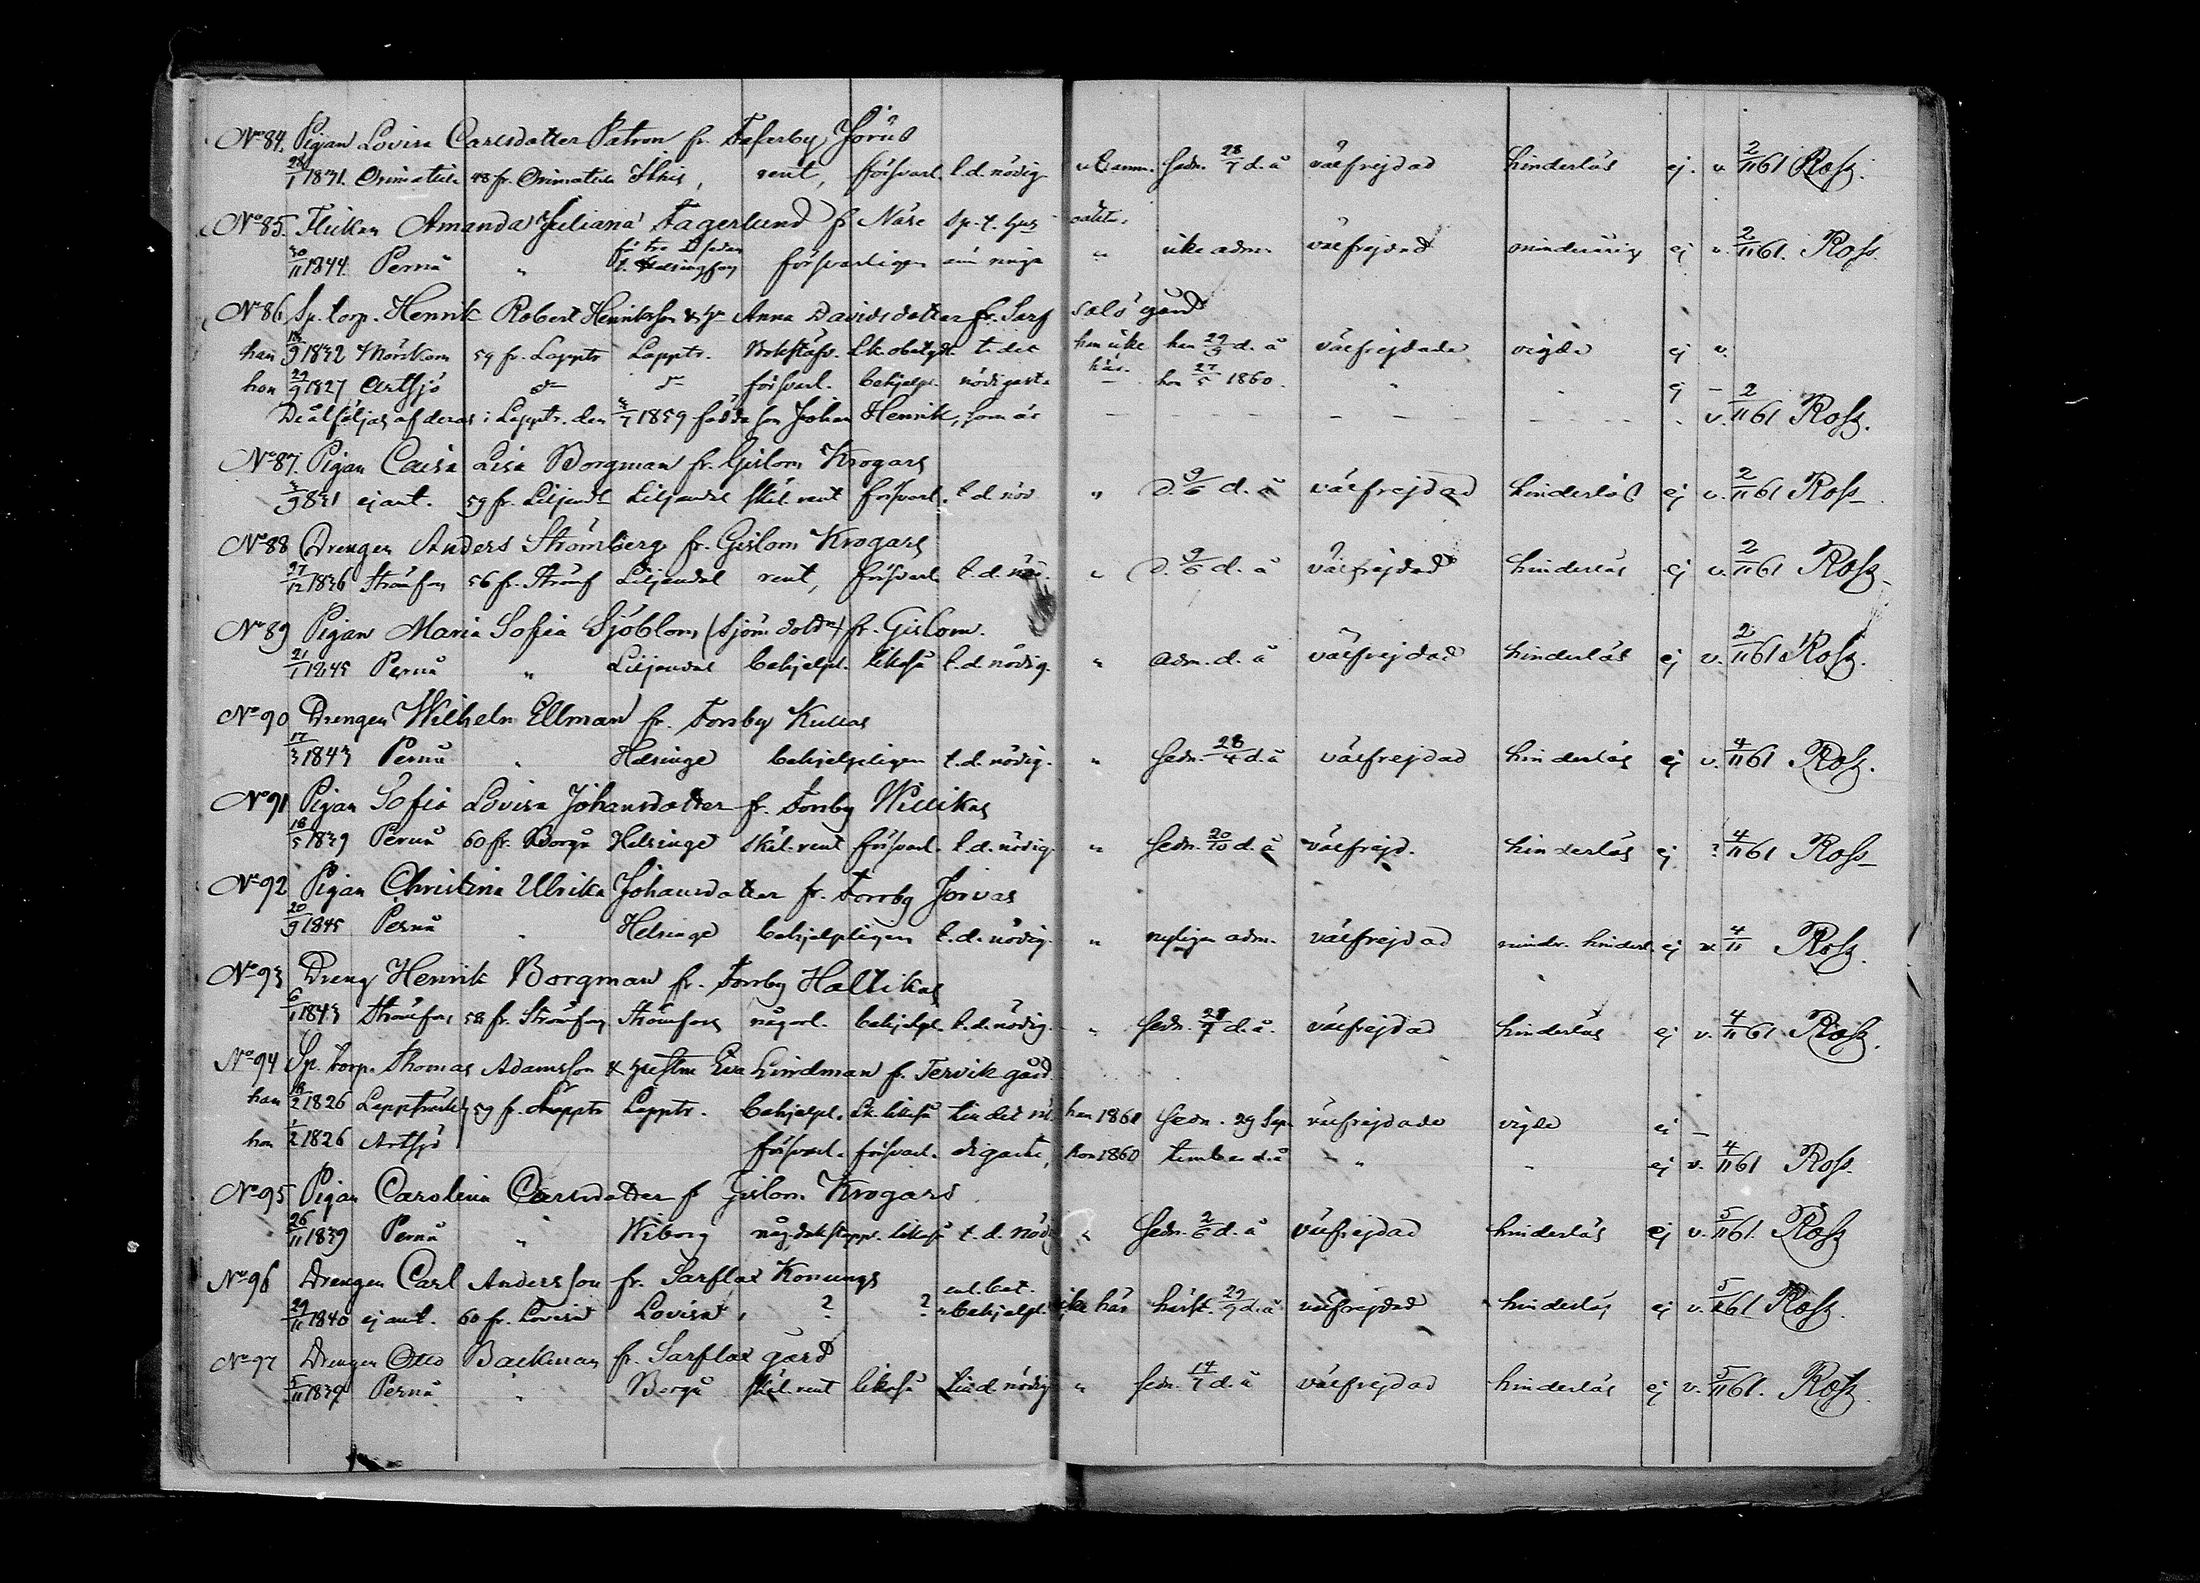 No 84. Pigan Lovisa Carlsdotter Patron fr. Tasarby Jorus
28/1 1831. Orimattila 48 fr. Orimattila Ithis, rent, försvarl. t.d. nödig u. Comm. sedn. 28/7 d. å välfrejdad hinderlös ej. v. 2/11 61 Ross.
No 85. Flickan Amanda Juliana Fagerlund f. Näse
30/11 1844 Pernå " för tre år sedan t. Helsingfors försvarligen " icke adm. välfrejdad minderårig ej v. 2/11 61. Ross.
No 86 Sp. torp. Henrik Robert Henriksson & h. Anna Davidsdotter fr. Sarfsalö gård
han 1832 Mörskom 59 fr. Lapptr. Lapptr. Bokstafv. Lk. obetydl. t. det han icke han 29/9 d. å välfrejdade vigde ej v.
hon 29/9 1827 Artsjö do do försvarl. behjelpl. nödigaste här. hon 27/5 1860. " " ej –
De åtföljas af deras i Lapptr. den 1859 födda son Johan Henrik, som är v. 2/11 61 Ross.
No 87. Pigan Caisa Lisa Borgman fr. Gislom Krogars
1831 ej ant. 59 fr. Liljendl Liljendal skäl. rent försvarl. t.d. nöd " d. 9/6 d. å välfrejdad hinderlös ej v. 2/11 61 Ross
No 88 Drengen Anders Strömberg fr. Gislom Krogars
27/12 1836 Strömfors 56 fr. Strömf Liljendal rent, försvarl. t.d. nöd. " d. 9/6 d. å välfrejdad hinderlös ej v. 2/11 61 Ross
No 89 Pigan Maria Sofia Sjöblom (sjöm. dotr) fr. Gislom.
21/1 1845 Pernå " Liljendal behjelpl. likaså t.d. nödig. " adm. d. å välfrejdad hinderlös ej v. 2/11 61 Ross.
No 90 Drengen Wilhelm Ellman fr. Forsby Kullas
17/3 1843 Pernå " Helsinge behjelpligen t.d. nödig. " sedn. 28/4 d. å välfrejdad hinderlös ej v. 4/11 61 Ross.
No 91 Pigan Sofia Lovisa Johansdotter fr. Forsby Willikas
18/5 1839 Pernå 60 fr. Borgå Helsinge skäl. rent försvarl. t.d. nödig. " sedn. 20/10 d. å välfrejd. hinderlös ej 4/11 61 Ross
No 92 Pigan Christina Ulrika Johansdotter fr. Forsby Jorvas
20/9 1845 Pernå " Helsinge behjelpligen t.d. nödig. " nyligen adm. välfrejdad minder. hinderl. ej v. 4/11 Ross.
No 93 Dreng Henrik Borgman fr. Forsby Hallikas
6/1 1843 Strömfors 58 fr. Strömfors Strömfors någorl. behjelpl. t.d. nödig. " sedn. 28/7 d. å. välfrejdad hinderlös ej v. 4/11 61 Ross.
No 94 Sp. torp. Thomas Adamsson & hustru Eva Lindman f. Tervik gård.
han 1826 Lappträsk 59 fr. Lapptr. Lapptr. behjelpl. Lk. likaså till det nö- han 1861 sedn. 29 Sep- välfrejdade vigde ej –
hon 1826 Artsjö försvarl. försvarl. digaste, hon 1860 tember d. å " " ej v. 4/11 61 Ross.
No 95 Pigan Carolina Carlsdotter f Gislom Krogars
26/11 1839 Pernå " Wiborg likaså t.d. nödig " sedn. 2/6 d. å välfrejdad hinderlös ej v. 5/11 61. Ross
No 96 Drengen Carl Andersson fr. Sarflax Konungs
29/11 1840 ej ant. 60 fr. Lovisa Lovisa, ? ? behjelpl. icke här 29/9 d. å välfrejdad hinderlös ej v. 5/11 61 Ross.
No 97 Drengen Otto Backman fr. Sarflax gård
5/11 1839 Pernå " Borgå skäl. rent likaså till d. nödig " sedn. 14/7 d. å välfrejdad hinderlös ej v. 5/11 61. Ross.